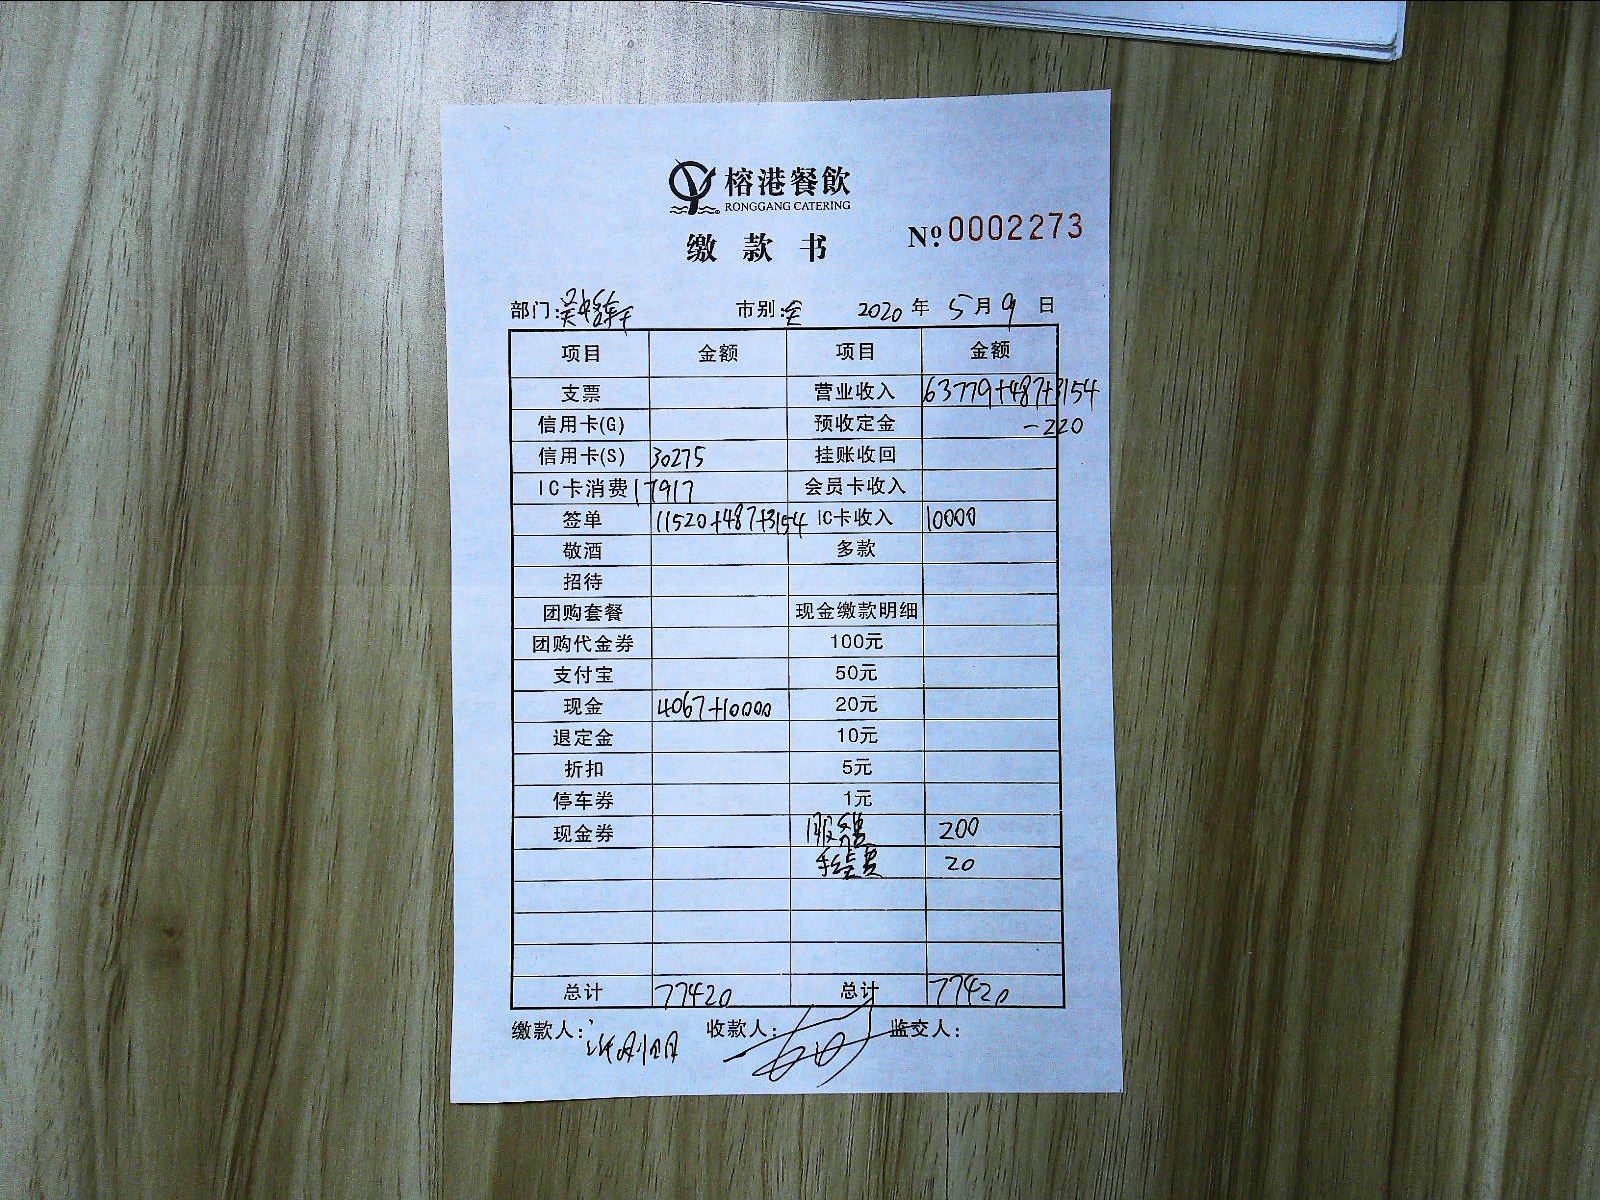 榕港餐飲
RONGGANG CATERING
缴款书
№:0002273
部门: 市别:全 2020年5月9日
项目 金额 项目 金额
支票 营业收入 63779+487+3154
信用卡(G) 预收定金 -220
信用卡(S) 30275 挂账收回
IC卡消费 17917 会员卡收入
签单 11520+487+3154 IC卡收入 10000
敬酒 多款
招待
团购套餐 现金缴款明细
团购代金券 100元
支付宝 50元
现金 4067+10000 20元
退定金 10元
折扣 5元
停车券 1元
现金券 服务费 200
手续费 20
总计 77420 总计 77420
缴款人: 收款人: 监交人: